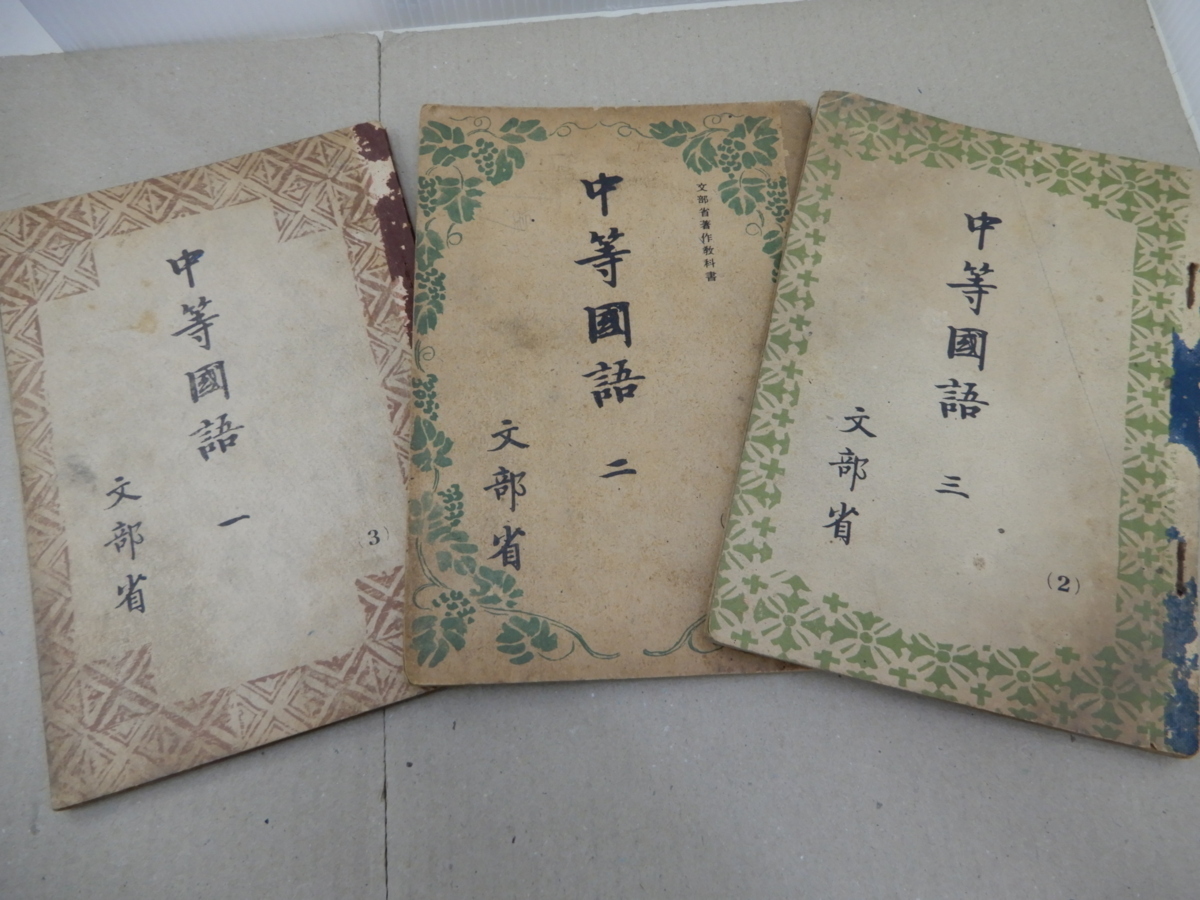 中等國語 一
(3)
文部省
文部省著作教科書
中等國語 二
文部省
中等國語 三
(2)
文部省